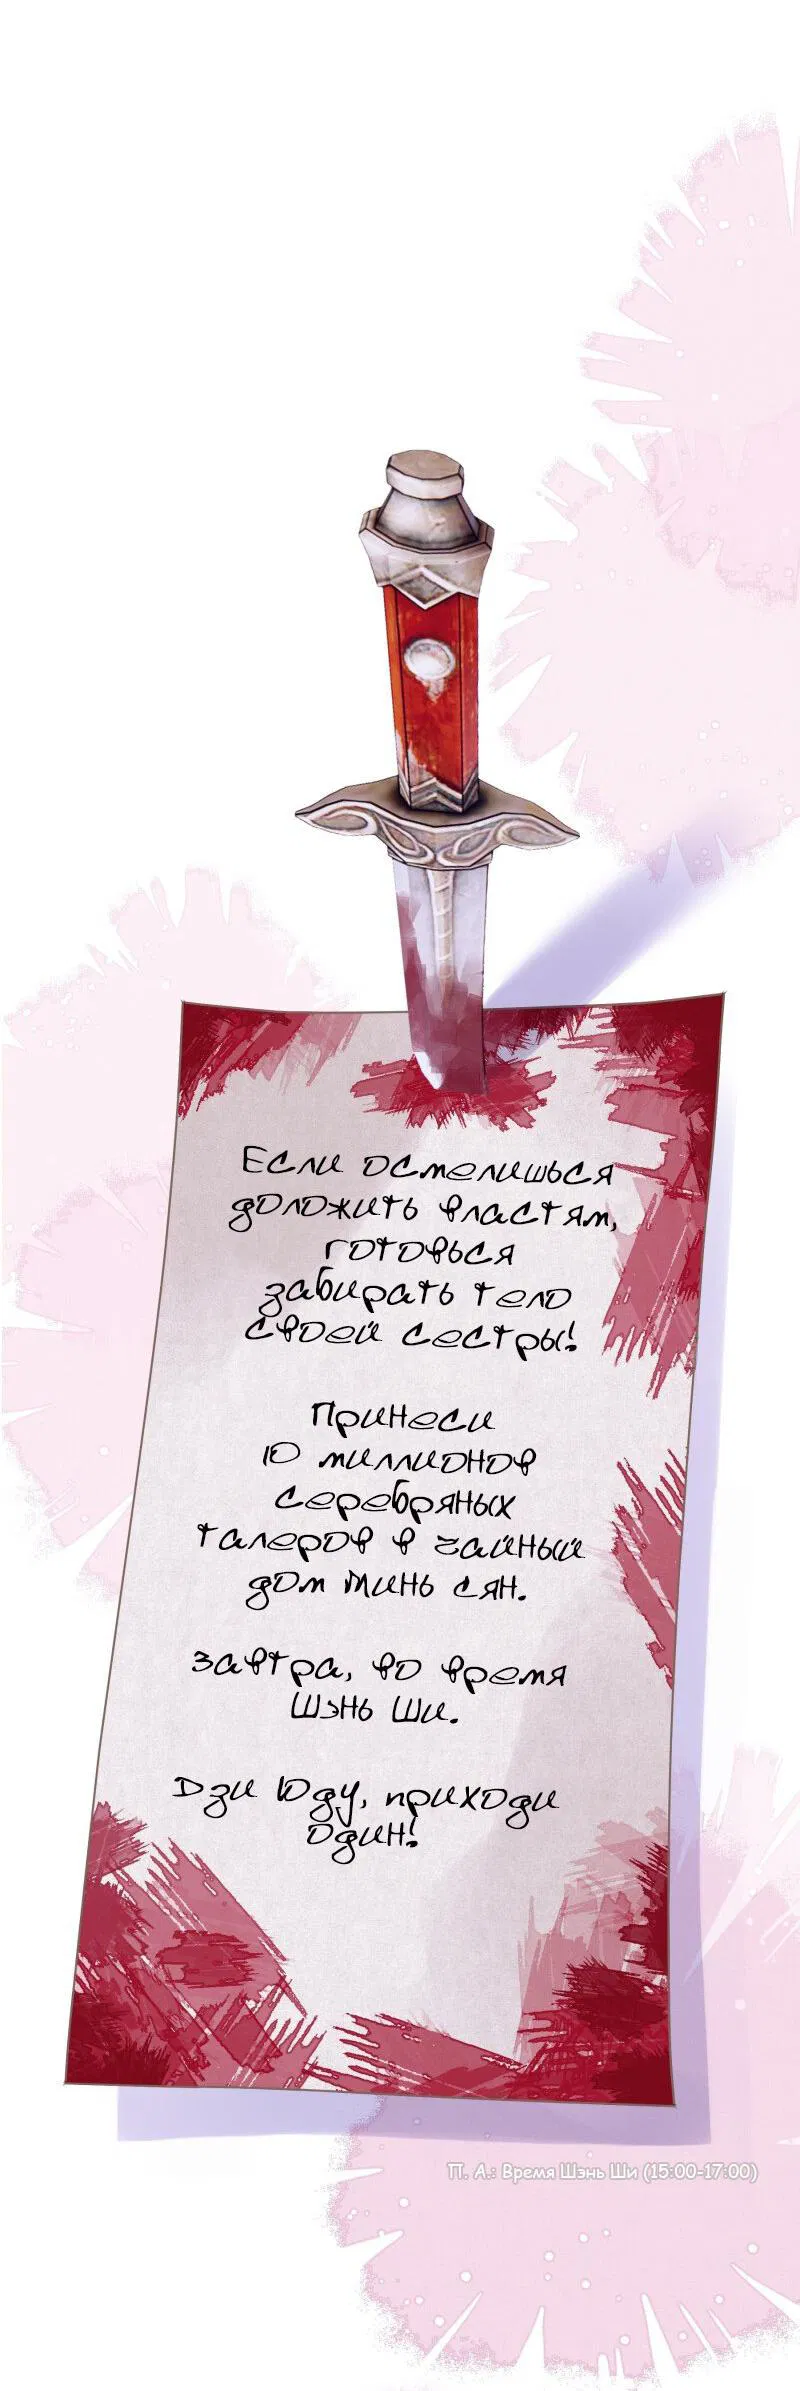 Если осмелишься
доложить властям,
готовься
забирать тело
своей сестры!
Принеси
10 миллионов
серебряных
талеров в чайный
дом Минь сян.
Завтра, во время
Шэнь Ши.
Дзи Юду, приходи
один!
П. А.: Время Шэнь Ши (15:00-17:00)